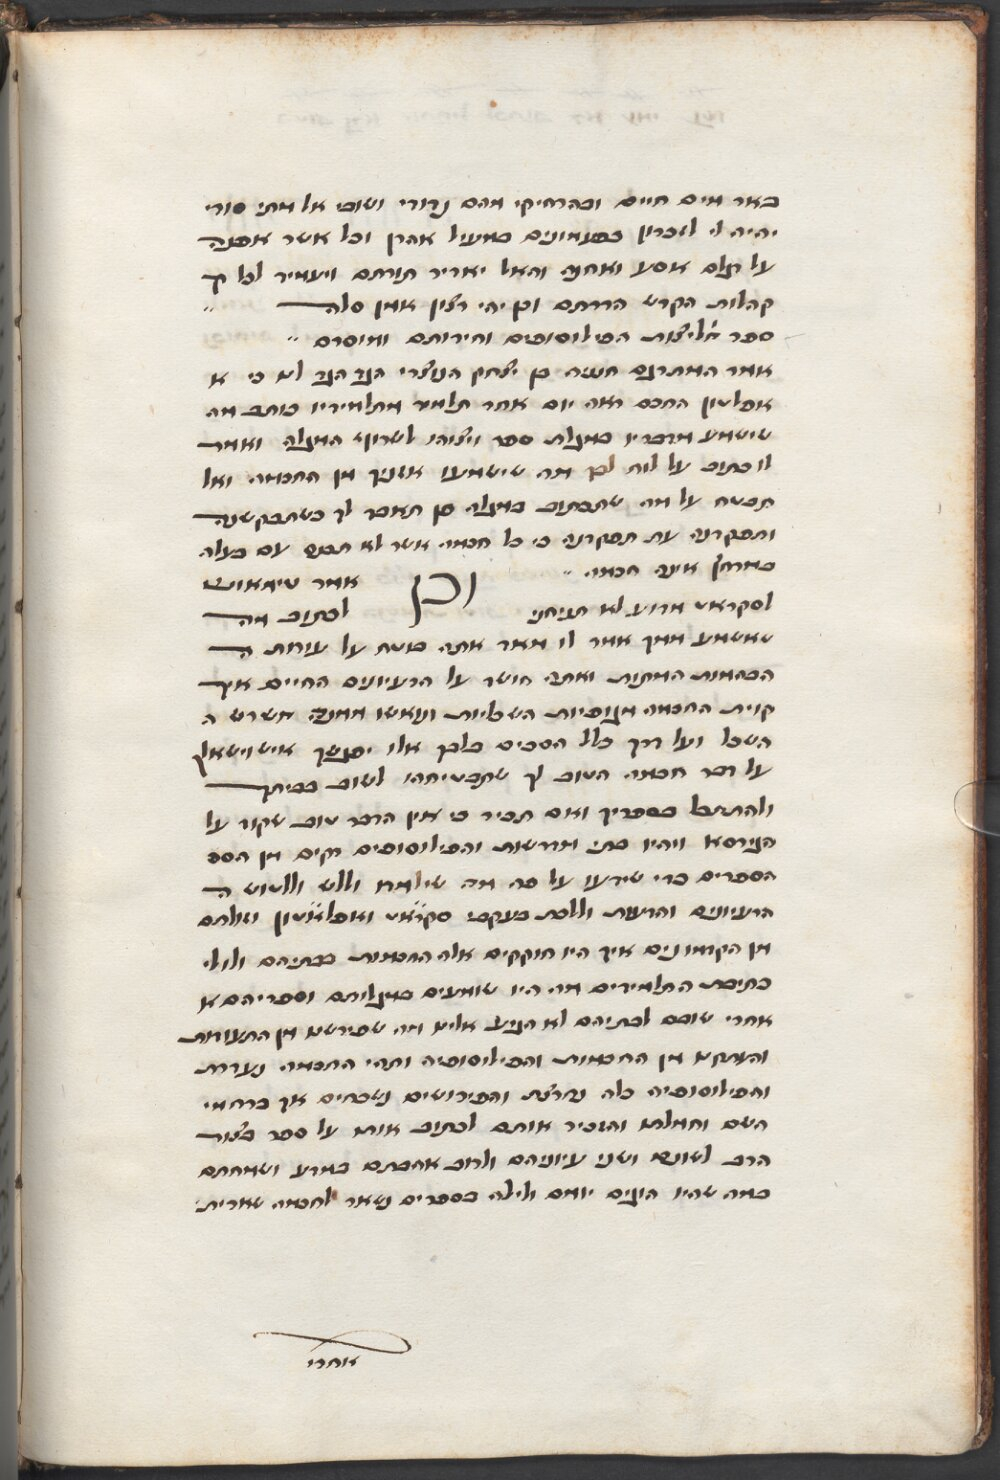 באר מים חיים ובהרחיקי מהם נדודי ושובי אל מתי סודי
יהיה לי לזכרון כפעמונים במעיל אהרן וכל אשר אפנה
על פיהם אסע ואחנה והאל יאדיר תורתם ויעמיד לכל ק
קהלות הקדש הדרתם וכן יהי רצון אמן סלה
ספר מליצות הפילוסופים וחידותם ומוסרם
אמר המתרגם חנניה בן יצחק הנוצרי הנה הנה לא כי א
אפלטון החכם ראה יום אחד תלמיד מתלמידיו כותב מה
שישמע מדבריו במגלת ספר ויצוהו לשרוף המגלה ואמר
לו כתוב על לוח לבך מה שישמעו אזניך מן החכמה ואל
תבטח על מה שתכתוב במגלה פן תאבד לך כשתבקשנה
ותפקדנה עת תפקדנה כי כל חכמה אשר לא תכנס עם בעלה
במרחץ אינה חכמה וכן אמר טימאוס
לסקראט מדוע לא תניחני לכתוב מה
שאשמע ממך אמר לו מאד אתה בוטח על עורות ה
הבהמות המתות ואתה חושד על הרעיונים החיים איך
קוית החכמה מגופיות השכליות ונואשו ממנה משרש ה
השכל ועל דרך כלל הסכים בלבך אלו יפגשך איש וישאלך
על דבר חכמה הטוב לך שתבטיחהו לשוב בביתך
ולהתבונן בספריך ואם תכיר כי אין הדבר טוב שקוד על
הגירסא ויהיו בתי מדרשות והפילוסופים רקים מן הספ
הספרים כדי שידעו על פה מה שילמדו וללש וללטוש ה
הרעיונים והדעות וללכת בעקבי סקראט ואפלאטון וזולתם
מן הקדמונים איך היו חוקקים אלה החכמות בבתיהם ולולי
כתיבת התלמידים מה היו שומעים במגלותם וספריהם א
אחרי שובם לבתיהם לא הגיע אלינו מה שפירשו מן התעודות
והעתקנו מן החכמות והפילוסופיה ותהי החכמה נעדרת
והפילוסופיה כלה נפרצת והפירושים נשכחים אך ברחמי
השם וחמלתו והזכיר אותם לכתוב אותו על ספר בצווי
הרב לשונם ושני עיוניהם ולרוב אהבתם במדע ושמחתם
במה שהיו הוגים יומם ולילה בספרים נשאר לחכמה שארית
אחרי